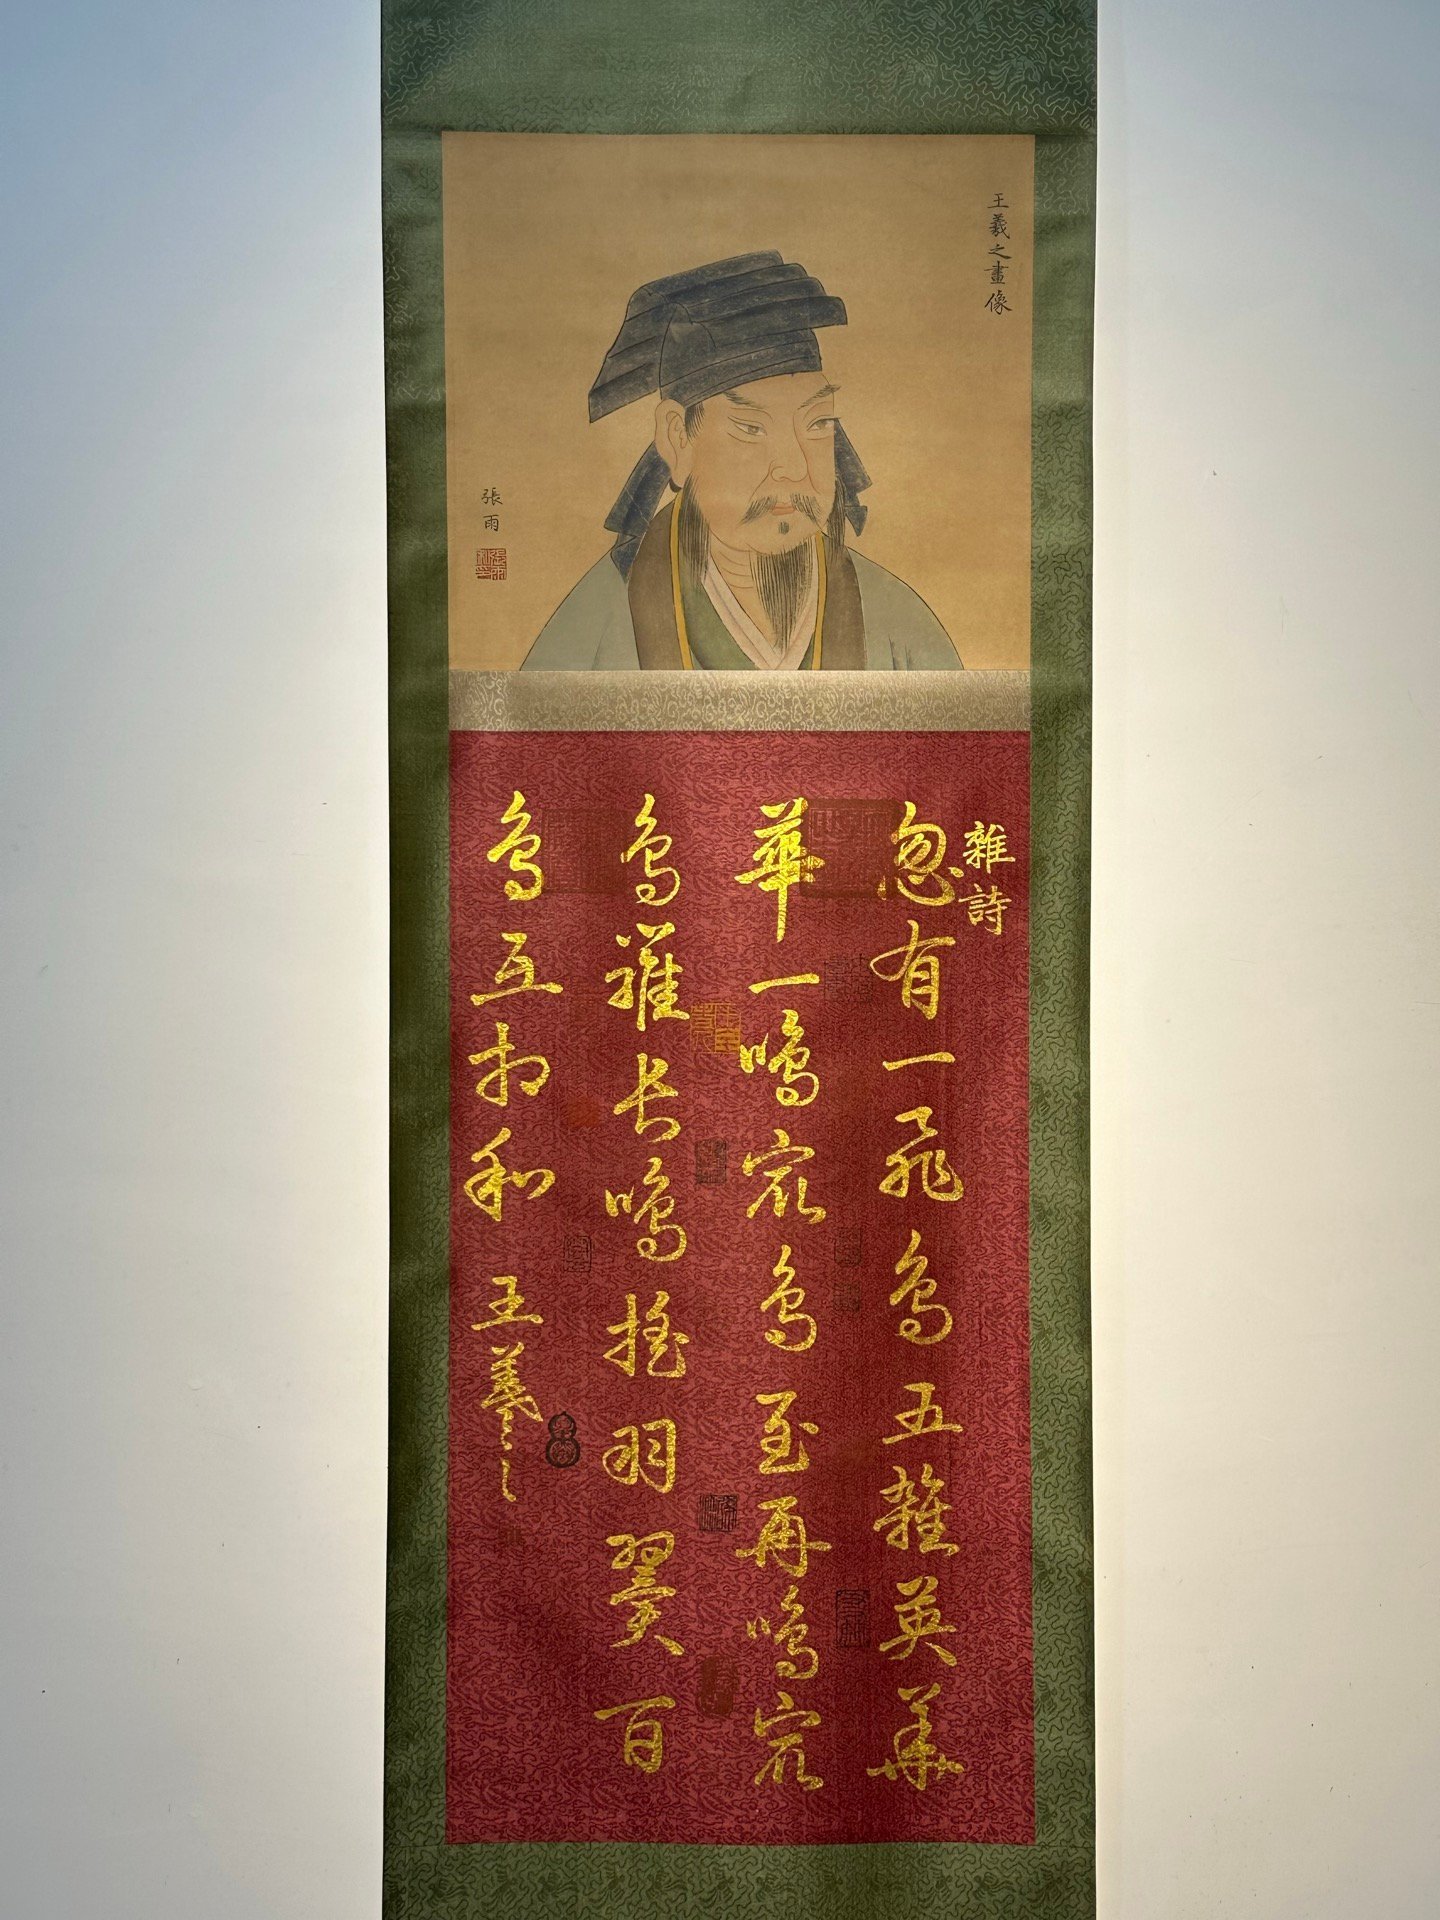 王羲之畫像
張雨
雜詩
忽有一飛鳥五雜英華
華一鳴眾鳥至再鳴眾
鳥羅長鳴搖羽翼百
鳥互相和
王羲之